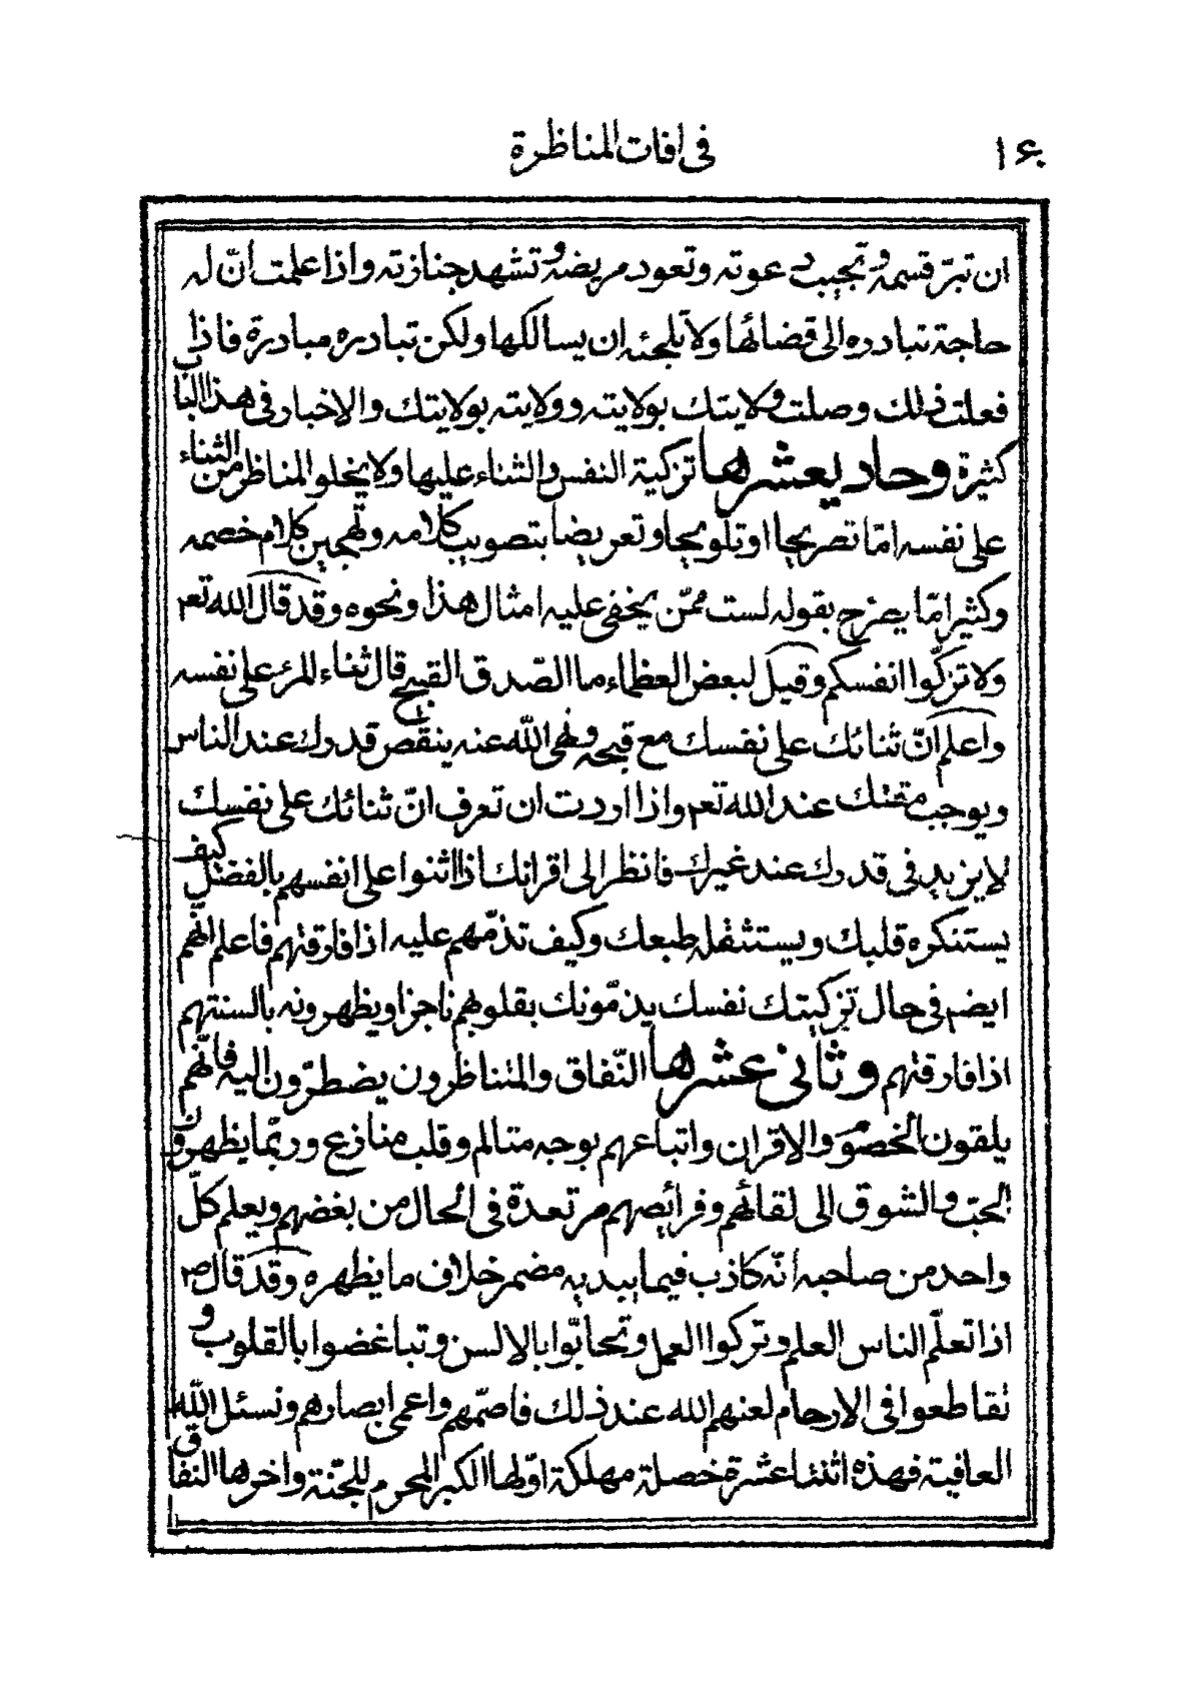 في افات المناظرة
ان تبرّ قسمه وتجيب دعوته وتعود مريضه وتشهد جنازته واذا علمت انّ له
حاجة تبادره الى قضائها ولا تلجئه ان يسالكها ولكن تبادره مبادرة فاذا
فعلت ذلك وصلت ولايتك بولايته وولايته بولايتك والاخبار في هذا الباب
كثيرة وحاد يعشرها تزكية النفس والثناء عليها ولا يخلو المناظر من الثناء
على نفسه امّا تصريحا او تلويحا وتعريضا بتصويب كلامه وتهجين كلام خصمه
وكثيرا مّا يصرّح بقوله لست ممّن يخفى عليه امثال هذا ونحوه وقد قال الله تعم
ولا تزكّوا انفسكم وقيل لبعض العظماء ما الصّدق القبيح قال ثناء المرء على نفسه
واعلم انّ ثنائك على نفسك مع قبحه ونهى الله عنه ينقص قدرك عند الناس
ويوجب مقتك عند الله تعم واذا اردت ان تعرف انّ ثنائك على نفسك
لا يزيد في قدرك عند غيرك فانظر الى اقرانك اذا اثنوا على انفسهم بالفضل كيف
يستنكره قلبك ويستثقله طبعك وكيف تذمّهم عليه اذا فارقتهم فاعلم انّهم
ايضم في حال تزكيتك نفسك يذمّونك بقلوبهم ناجزا ويظهرونه بالسنتهم
اذا فارقتهم وثاني عشرها النّفاق والمتناظرون يضطرّون اليه فانّهم
يلقون الخصوم والاقران واتباعهم بوجه متالم وقلب منازع وربّما يظهرون
الحبّ والشوق الى لقائهم وفرائصهم مرتعدة في الحال من بغضهم ويعلم كلّ
واحد من صاحبه انّه كاذب فيما يبديه مضمر خلاف ما يظهره وقد قال ص
اذا تعلّم الناس العلم وتركوا العمل وتحابّوا بالالسن وتباغضوا بالقلوب و
تقاطعوا في الارحام لعنهم الله عند ذلك فاصمّهم واعمى ابصارهم ونسئل الله
العافية فهذه اثنتا عشرة خصلة مهلكة اوّلها الكبر المحرم للجنّة واخرها النفاق